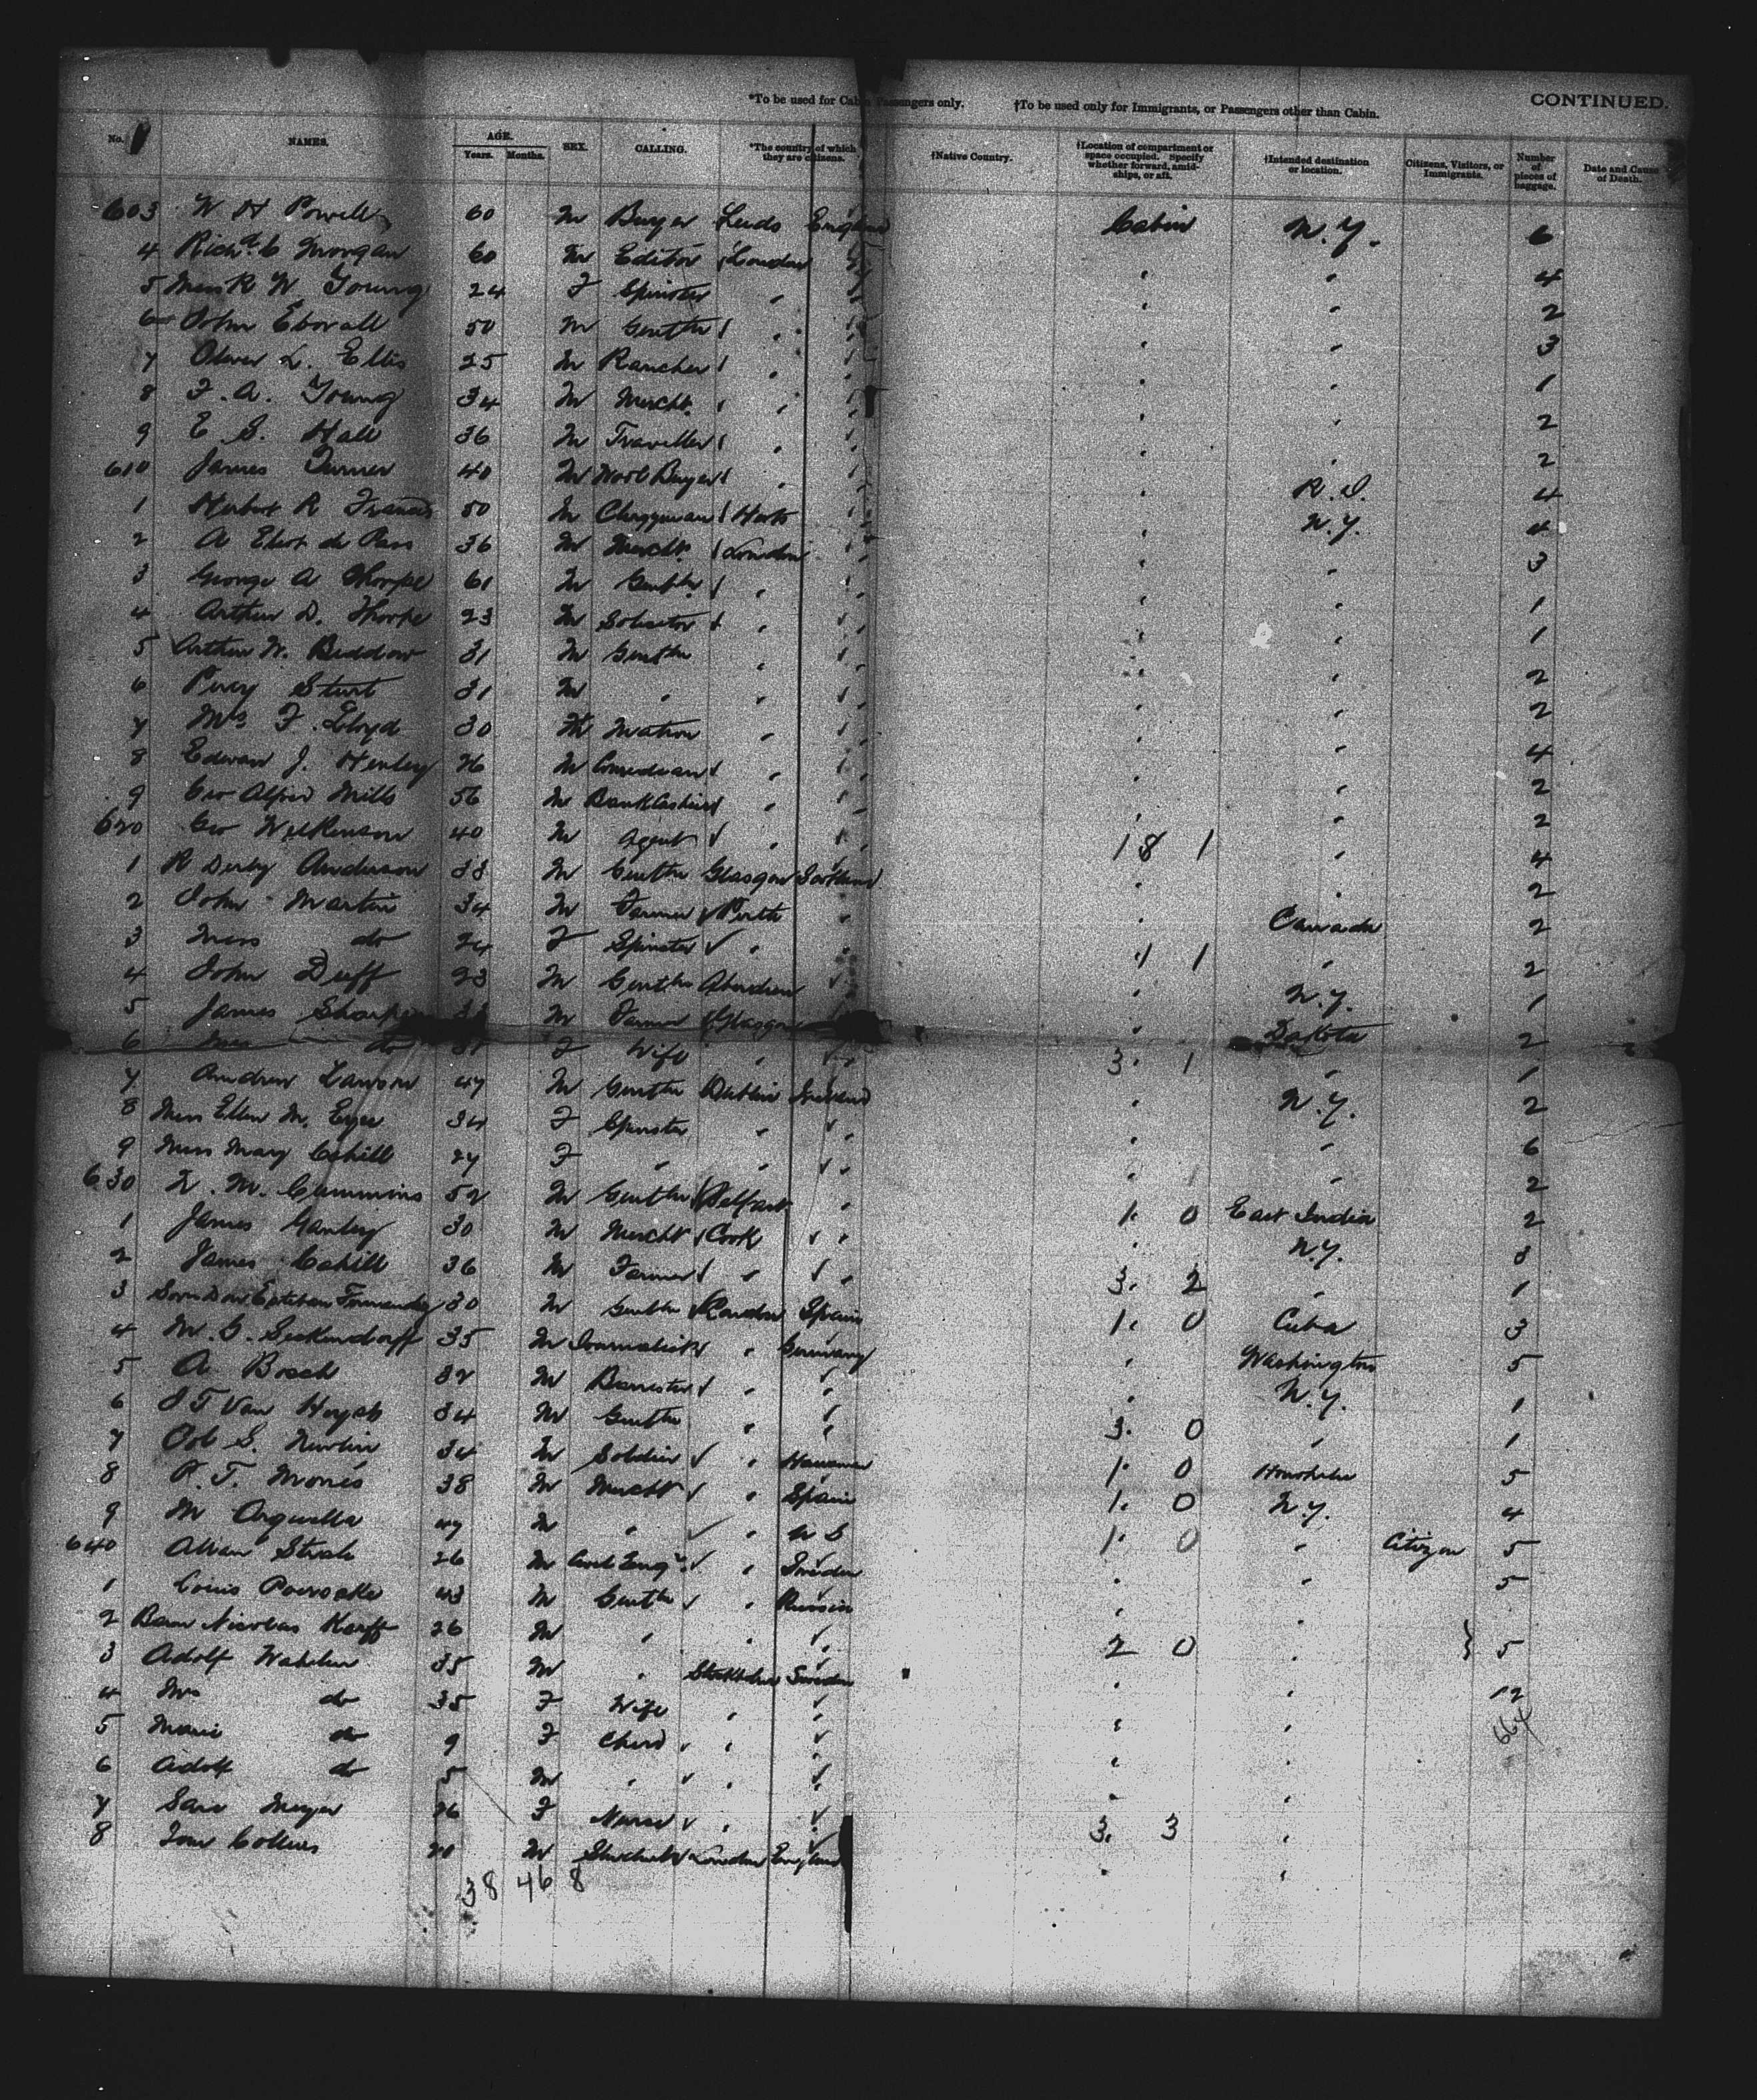 *To be used for Cabin Passengers only. †To be used only for Immigrants, or Passengers other than Cabin. CONTINUED.
No. NAMES. AGE. Years. Months. SEX. CALLING. *The country of which they are citizens. †Native Country. †Location of compartment or space occupied. Specify whether forward, amidships, or aft. †Intended destination or location. Citizens, Visitors, or Immigrants. Number of pieces of baggage. Date and Cause of Death.
603 W H Powell 60 M Buyer Leeds England Cabin N.Y. 6
4 Richd. C Morgan 60 M Editor London " " " 4
5 Miss R W Young 24 F Spinster " " " " 2
6 John Eborall 50 M Gentln " " " " 3
7 Oliver L. Ellis 25 M Rancher " " " " 1
8 F. A. Young 34 M Mercht. " " " " 2
9 E. S. Hall 36 M Traveller " " " " 2
610 James Turner 40 M Wool Buyer " " " R.I. 4
1 Herbert R Francis 50 M Clergyman Herts " " N.Y. 4
2 A Eliot de Pass 36 M Mercht. London " " " 3
3 George A Thorpe 61 M Gentln " " " " 1
4 Arthur D. Thorpe 23 M Solicitor " " " " 1
5 Arthur W. Beddow 31 M Gentln " " " " 2
6 Percy Sturt 31 M " " " " " 2
7 Mrs F. Lloyd 30 Matron " " " " 4
8 Edward J. Henley 26 M Comedian " " " " 2
9 Geo Alfred Mills 56 M Bank Cashier " " " " 2
620 Geo Wilkinson 40 M Agent " " 18 1 " 4
1 R Derby Anderson 33 M Gentln Glasgow Scotland " " 2
2 John Martin 34 M Farmer Perth " " Canada 2
3 Miss do 24 F Spinster " " 1 1 " 2
4 John Duff 23 M Gentln Aberdeen " " N.Y. 1
5 James M Farmer Glasgow " " Dakota 2
6 do F Wife " " 3. 1 " 1
7 Andrew Lawson 47 M Gentln Dublin Ireland " N.Y. 2
8 Miss Ellen M. Eyre 34 F Spinster " " " " 6
9 Miss Mary Cahill 27 F " " " " " 2
630 M. Cummins 52 M Gentln Belfast " 1. 0 East India 2
1 James Ganley 30 M Mercht Cork " " N.Y. 8
2 James Cahill 36 M Farmer " " 3. 2 " 1
3 Esteban Fernandez 30 M Gentln London Spain 1. 0 Cuba 3
4 M. G. Seckendorff 35 M Journalist " Germany " Washington 5
5 A Bosch 32 M Barrister " " " N.Y. 1
6 34 M Gentln " " 3. 0 " 1
7 Col S. 34 M Soldier " Hawaiian 1. 0 Honolulu 5
8 P. T. Morris 38 M Mercht " Spain 1. 0 N.Y. 4
9 M Arguella 47 M " " U S 1. 0 " Citizen 5
640 Allan 26 M Civil Engr. " Sweden " " 5
1 Louis 43 M Gentln " Russia " "
2 Baron Nicolas Korff 26 M " " " 2 0 " } 5
3 Adolf 35 M " Stockholm Sweden " " 12
4 Mrs do 35 F Wife " " " " 664
5 Marie do 9 F Child " " " "
6 Adolf do 5 M " " " " "
7 Sara Meyer 26 F Nurse " " 3. 3 "
8 Tom Collins 20 M Student London England " "
38 46 8